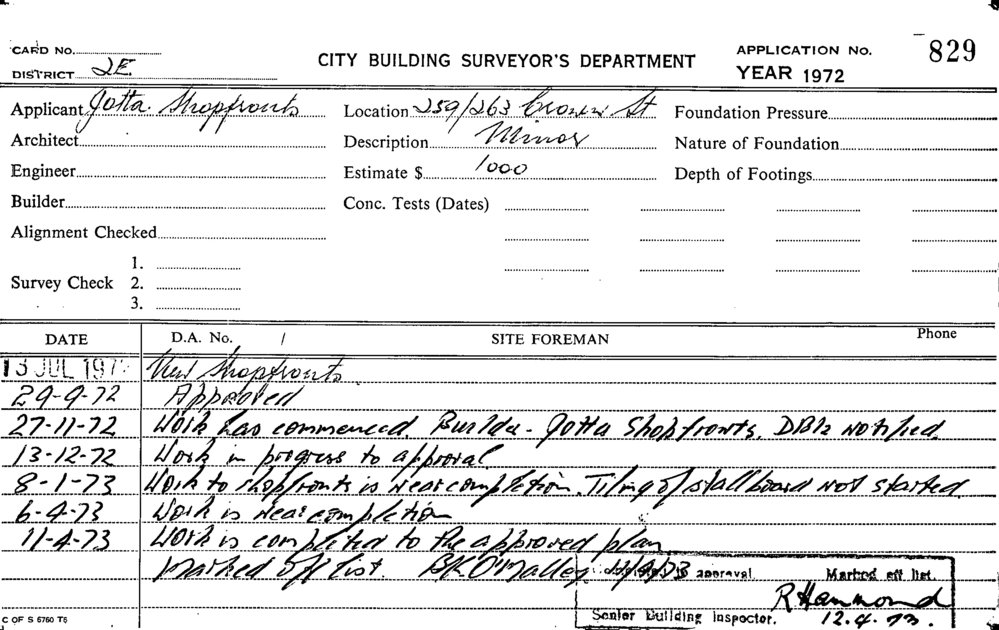 CARD No.
DISTRICT 2E.
CITY BUILDING SURVEYOR'S DEPARTMENT
APPLICATION No. 829
YEAR 1972
Applicant Jotta Shopfronts
Location 259/263 Crown St
Foundation Pressure
Architect
Description Minor
Nature of Foundation
Engineer
Estimate $ 1000
Depth of Footings
Builder
Conc. Tests (Dates)
Alignment Checked
Survey Check 1.
2.
3.
DATE D.A. No. / SITE FOREMAN Phone
13 JUL 197 New Shopfronts.
29-9-72 Approved
27-11-72 Work has commenced. Builder - Jotta Shopfronts. notified.
13-12-72 Work in progress to approval
8-1-73 Work to shopfronts is near completion. Tiling of stallboard not started.
6-4-73 Work is near completion
11-4-73 Work is completed to the approved plan
Marked off list. B.K. O'Malley 11/4/73
approval. Marked off list.
R Hammond
Senior Building Inspector. 12.4.73.
C OF S 6760 T6